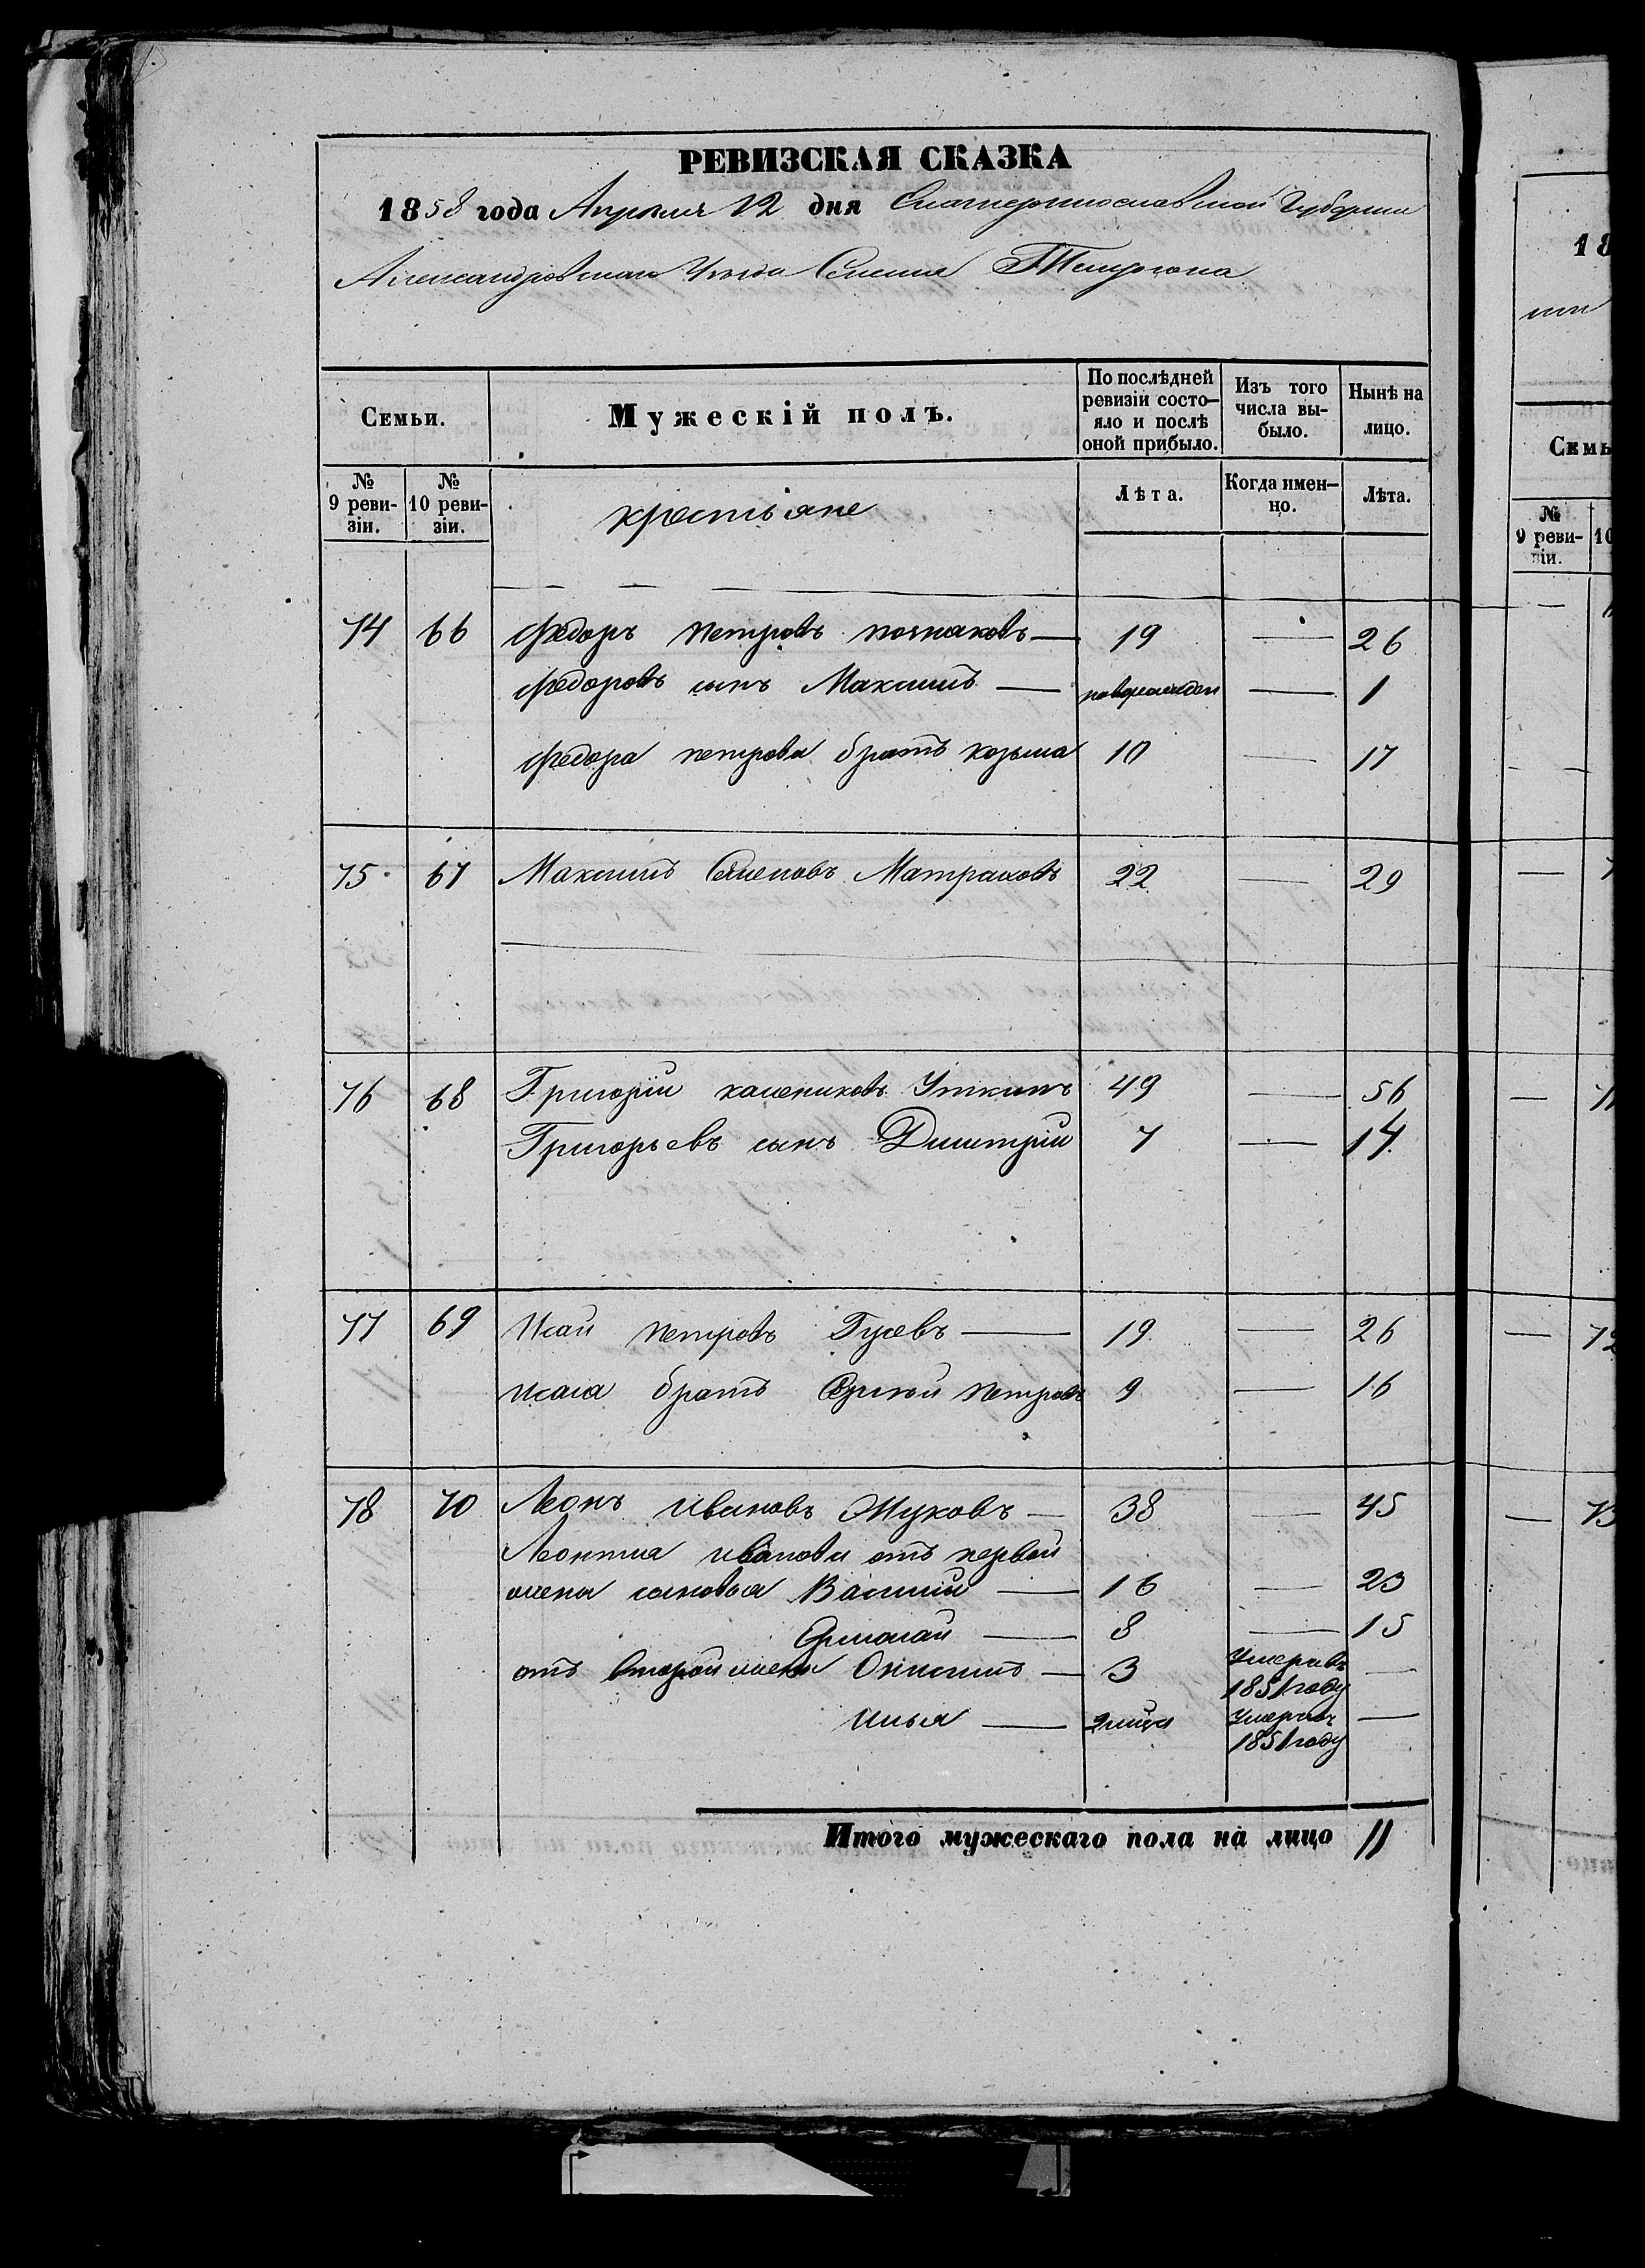 РЕВИЗСКАЯ СКАЗКА
1858 года Апреля 12 дня Екатеринославской Губернии
Александровскаго Уезда Селения
Семьи. Мужескій полъ. По послѣдней ревизіи состо- яло и послѣ оной прибыло. Изъ того числа вы- было. Нынѣ на лицо.
№ 9 реви- зіи. № 10 реви- зіи. крестьяне Лѣта. Когда имен- но. Лѣта.
74 66 Федоръ Петровъ 19 — 26
Федоровъ сынъ Максимъ — новорожден — 1
Федора петрова братъ козьма 10 — 17
75 67 Максимъ Семеновъ Матраковъ 22 — 29
76 68 Григорій калениковъ Уткинъ 49 — 56
Григорьевъ сынъ Дмитрій 7 — 14
77 69 Исай петровъ Гусевъ — 19 — 26
исаія братъ Сергей петровъ 9 — 16
78 70 Леонъ ивановъ Жуковъ — 38 — 45
Леонтия иванова отъ первой
жены сыновья Василий — 16 — 23
Ермолай — 8 — 15
отъ второй жены Онисимъ — 3 Умеръ въ 1851 году —
илья — Умеръ 1851 году —
Итого мужескаго пола на лицо 11
18
Семь
№ 9 реви- зіи. 10